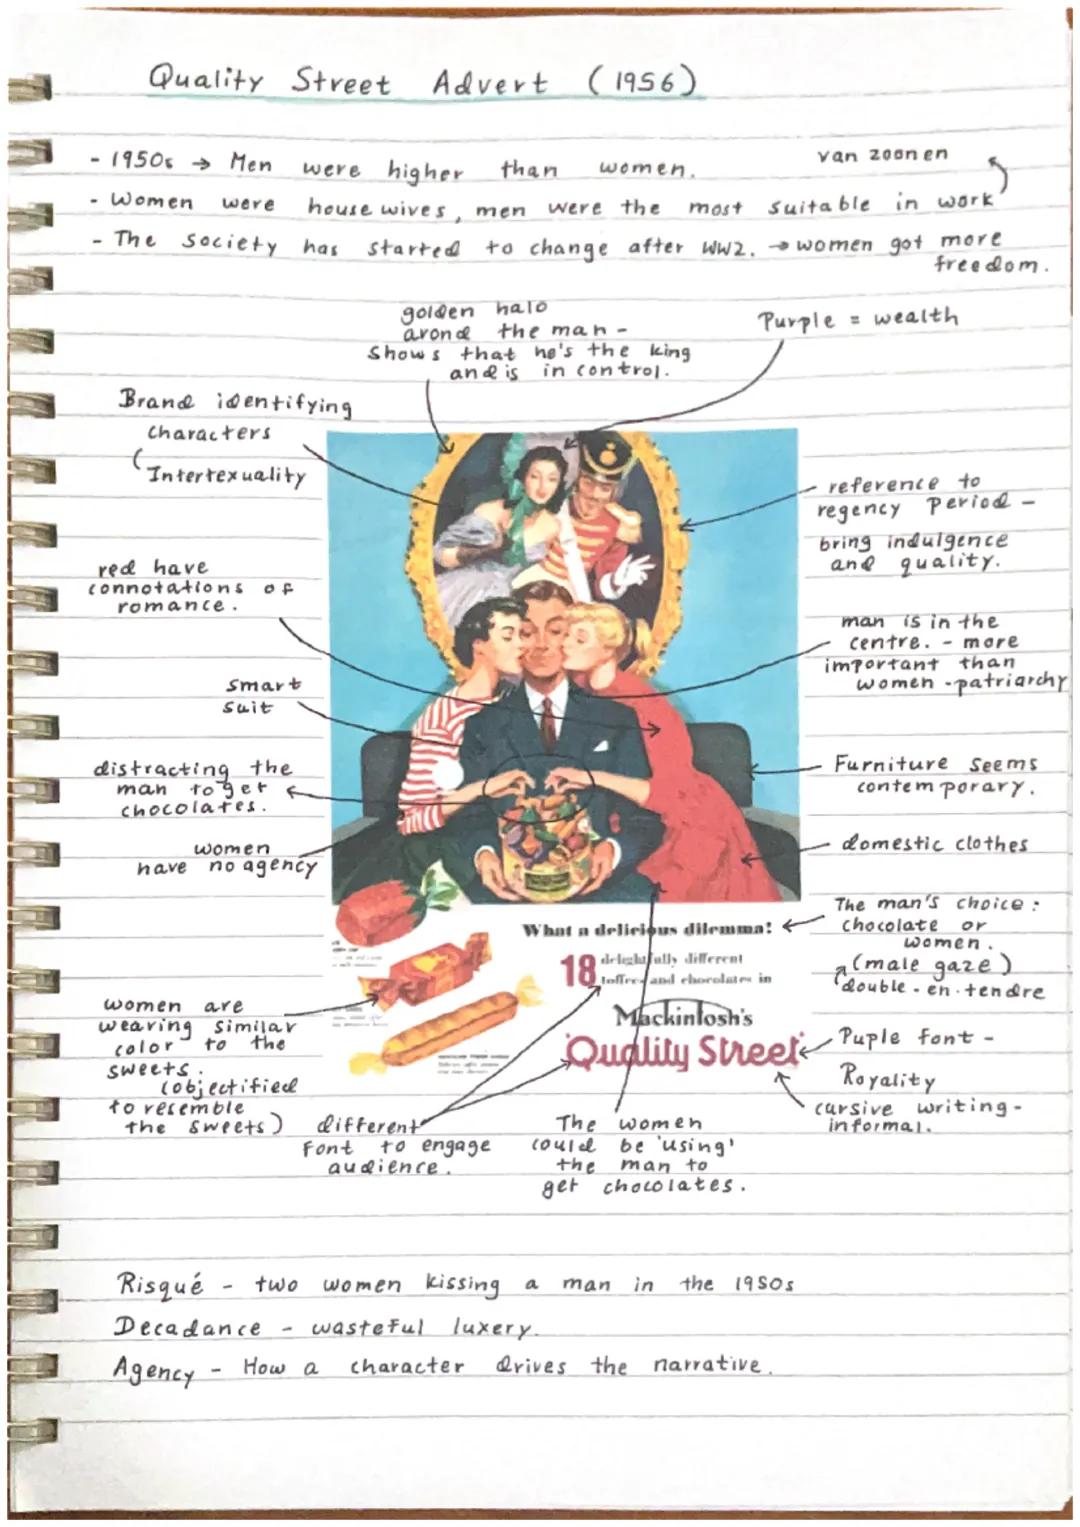 Quality Street Advert (1956)
- 1950s → Men were higher than women.
van zoonen
- Women were house wives, men were the most suitable in work
- The Society has started to change after WW2. → women got more
freedom.
golden halo
arond the man -
Shows that he's the king
and is in control.
Purple = wealth
Brand identifying
characters
(Intertexuality
reference to
regency period -
bring indulgence
and quality.
red have
connotations of
romance.
man is in the
centre. - more
important than
women - patriarchy
smart
suit
distracting the
man to get
chocolates.
Furniture seems
contemporary.
women
have no agency
domestic clothes
The man's choice:
chocolate or
women.
(male gaze)
double-en-tendre
What a delicious dilemma!
18 delightfully different
toffees and chocolates in
Mackintosh's
'Quality Street'
women are
wearing similar
color to the
sweets.
(objectified
to resemble
the sweets)
Puple font -
Royality
cursive writing -
informal.
different
font to engage
audience.
The women
could be 'using'
the man to
get chocolates.
Risqué - two women kissing a man in the 1950s
Decadance - wasteful luxery.
Agency - How a character drives the narrative.